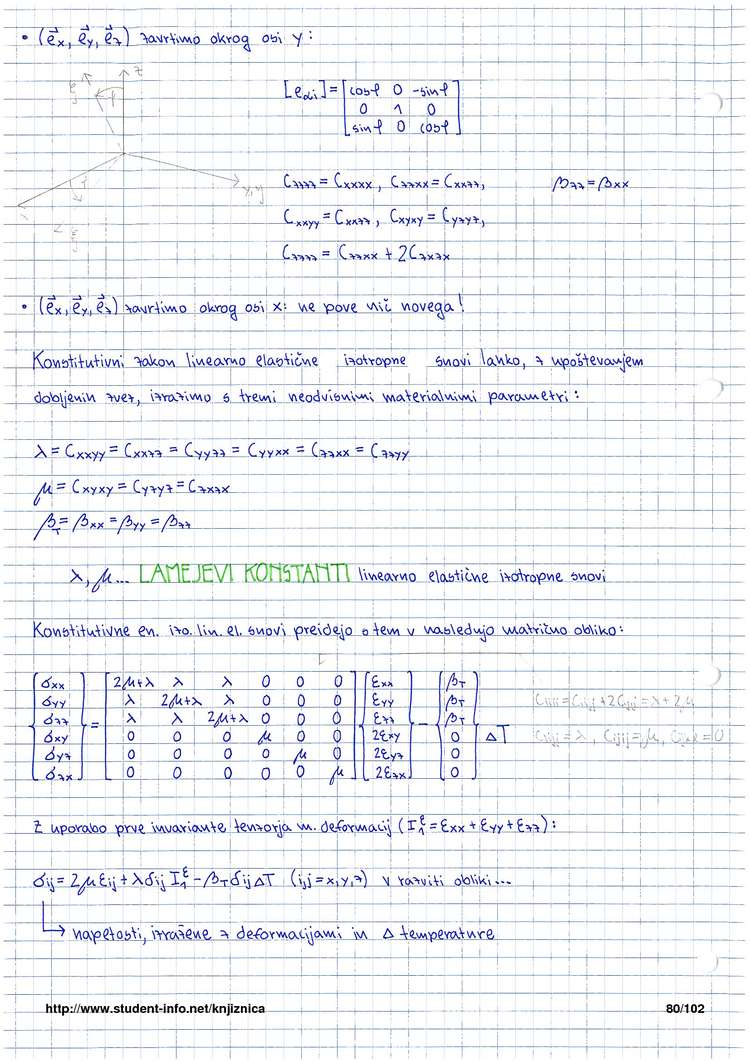 • (e⃗x, e⃗y, e⃗z) zavrtimo okrog osi y:
z
[eαi] = [cosφ 0 -sinφ
0 1 0
sinφ 0 cosφ]
y,η
x
Czzzz = Cxxxx, Czzxx = Cxxzz, βzz = βxx
Cxxyy = Cxxzz, Cxyxy = Cyzyz,
Czzzz = Czzxx + 2Czxzx
• (e⃗x, e⃗y, e⃗z) zavrtimo okrog osi x: ne pove nič novega!
Konstitutivni zakon linearno elastične izotropne snovi lahko, z upoštevanjem
dobljenih zvez, izrazimo s tremi neodvisnimi materialnimi parametri:
λ = Cxxyy = Cxxzz = Cyyzz = Cyyxx = Czzxx = Czzyy
μ = Cxyxy = Cyzyz = Czxzx
βT = βxx = βyy = βzz
λ, μ... LAMEJEVI KONSTANTI linearno elastične izotropne snovi
Konstitutivne en. izo. lin. el. snovi preidejo s tem v naslednjo matrično obliko:
{σxx} [2μ+λ λ λ 0 0 0] {εxx} {βT}
{σyy} [λ 2μ+λ λ 0 0 0] {εyy} {βT} Ciiii = Ciijj + 2Cijij = λ + 2μ
{σzz} = [λ λ 2μ+λ 0 0 0] {εzz} - {βT} ΔT
{σxy} [0 0 0 μ 0 0] {2εxy} {0} Ciijj = λ, Cijij = μ, Cijkk = 0
{σyz} [0 0 0 0 μ 0] {2εyz} {0}
{σzx} [0 0 0 0 0 μ] {2εzx} {0}
Z uporabo prve invariante tenzorja m. deformacij (I₁ᵋ = εxx + εyy + εzz):
σij = 2μεij + λδij I₁ᵋ - βTδijΔT (i,j = x,y,z) v razviti obliki...
↳ napetosti, izražene z deformacijami in Δ temperature
http://www.student-info.net/knjiznica 80/102